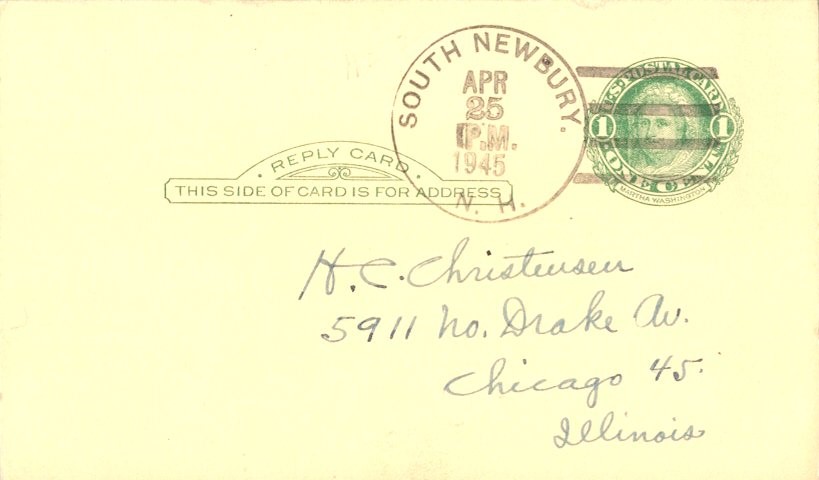 SOUTH NEWBURY.
APR
25
P.M.
1945
N. H.
U.S. POSTAL CARD
1 1
ONE CENT
MARTHA WASHINGTON
REPLY CARD
THIS SIDE OF CARD IS FOR ADDRESS
H. C. Christensen
5911 No. Drake Av.
Chicago 45.
Illinois